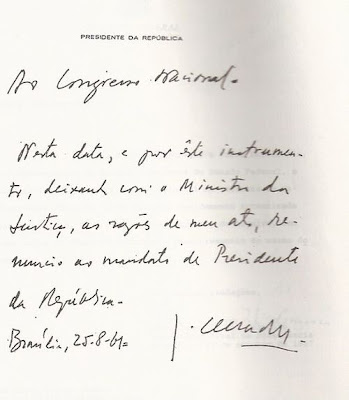 PRESIDENTE DA REPÚBLICA
Ao Congresso Nacional.
Nesta data, e por êste instrumen-
to, deixando com o Ministro da
Justiça, as razões de meu ato, re-
nuncio ao mandato de Presidente
da República.
Brasília, 25-8-61=
J. Quadros